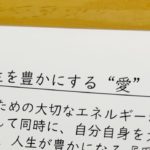 を豊かにする“愛”
ための大切なエネルギー
して同時に、自分自身を
、人生が豊かになる